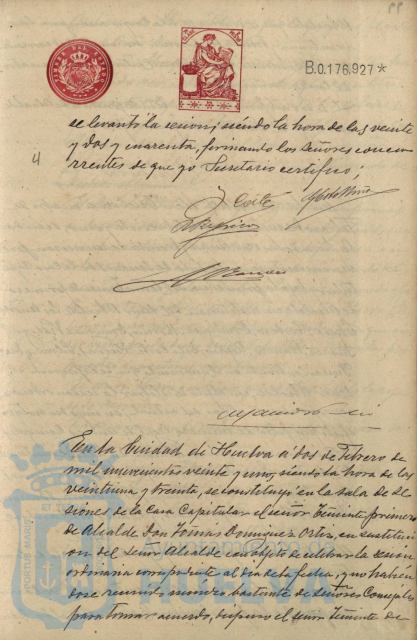 B.0.176,927*
se levantó la sesion, siendo la hora de las veinte
y dos y cuarenta, formando los Señores concu-
rrentes de que yo Secretario certifico;
En la Ciudad de Huelva á dos de Febrero de
mil novecientos veinte y uno, siendo la hora de las
veintiuna y treinta, se constituyó en la sala de se-
siones de la Casa Capitular el señor Teniente primero
de Alcalde Don Tomas Dominguez Ortiz, en sustitu-
cion del Señor Alcalde con objeto de celebrar la sesion
ordinaria correspondiente al dia de la fecha, y no habien-
dose reunido número bastante de Señores Concejales
para tomar acuerdo, dispuso el señor Teniente de